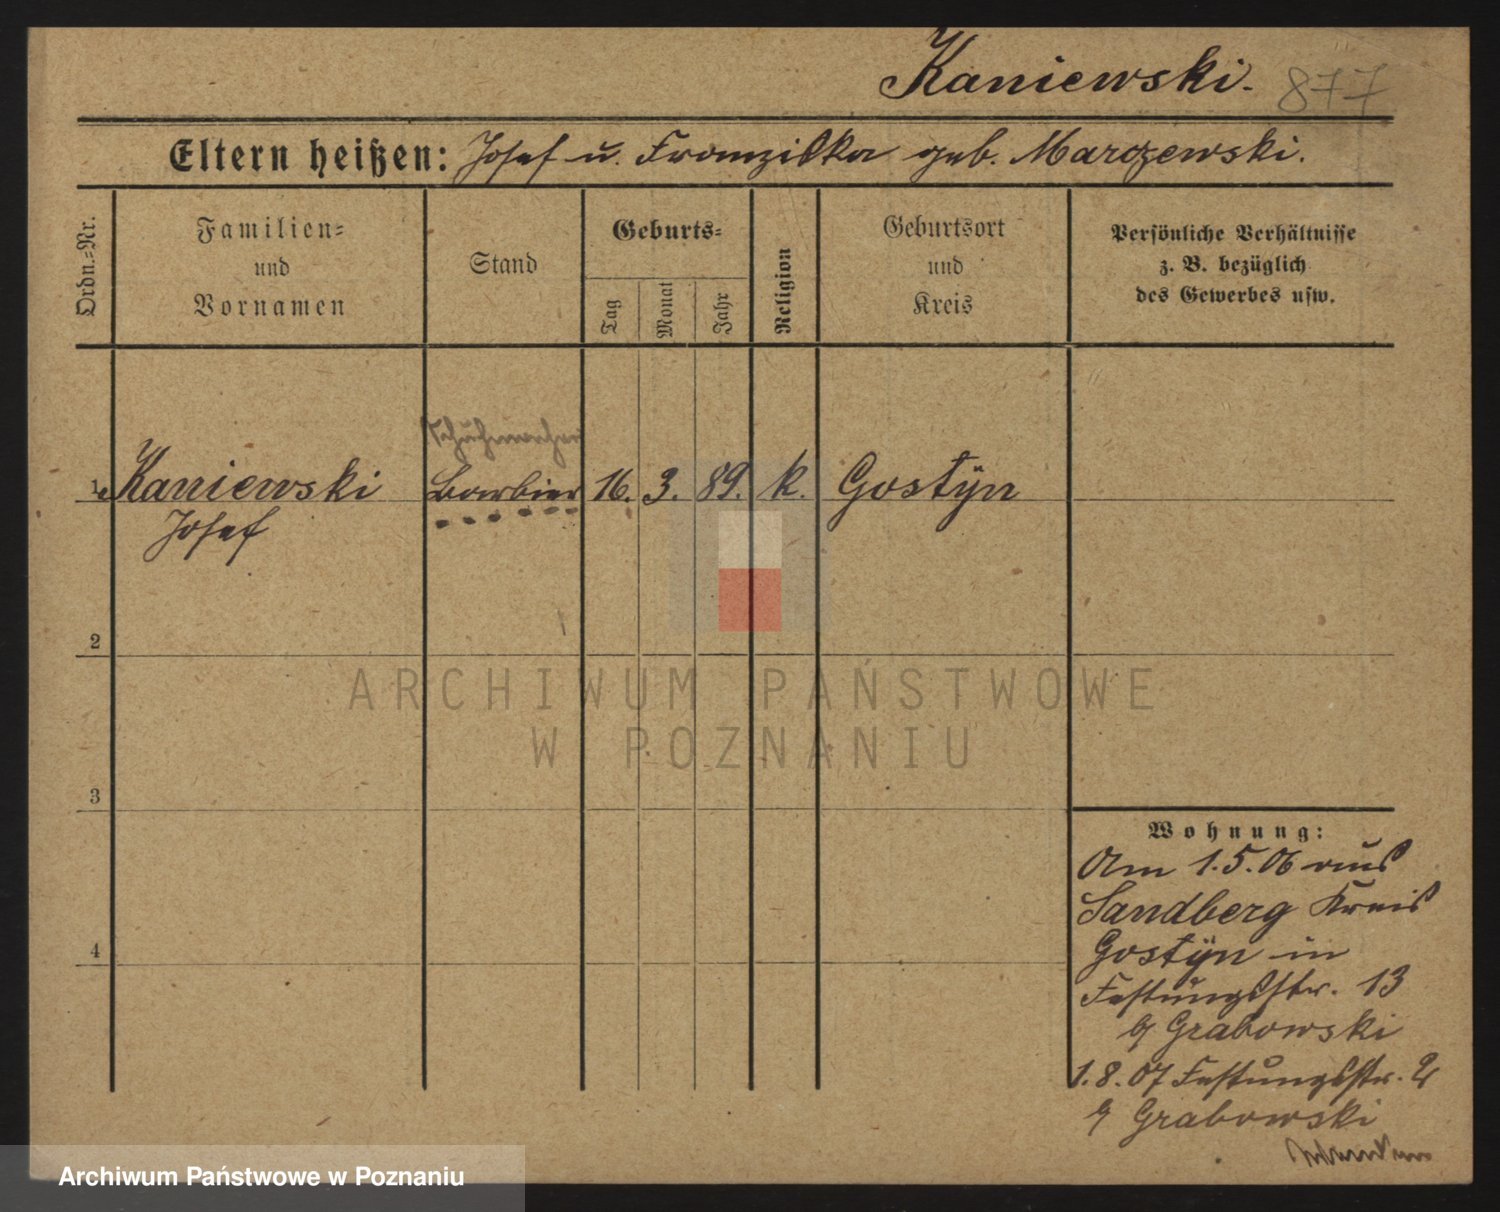 Kaniewski. 877
Eltern heißen: Josef u. Franziska geb. Marczewski.
Ordn.-Nr.
Familien-
und
Vornamen
Stand
Geburts-
Tag
Monat
Jahr
Religion
Geburtsort
und
Kreis
Persönliche Verhältnisse
z. B. bezüglich
des Gewerbes usw.
1 Kaniewski Barbier 16. 3. 89. k. Gostÿn
Josef
2
3
4
Wohnung:
Am 1.5.06 aus
Sandberg Kreis
Gostÿn in
Festungsstr. 13
b/ Grabowski
1.8.07 Festungsstr. 2
b/ Grabowski
ARCHIWUM PAŃSTWOWE
W POZNANIU
Archiwum Państwowe w Poznaniu